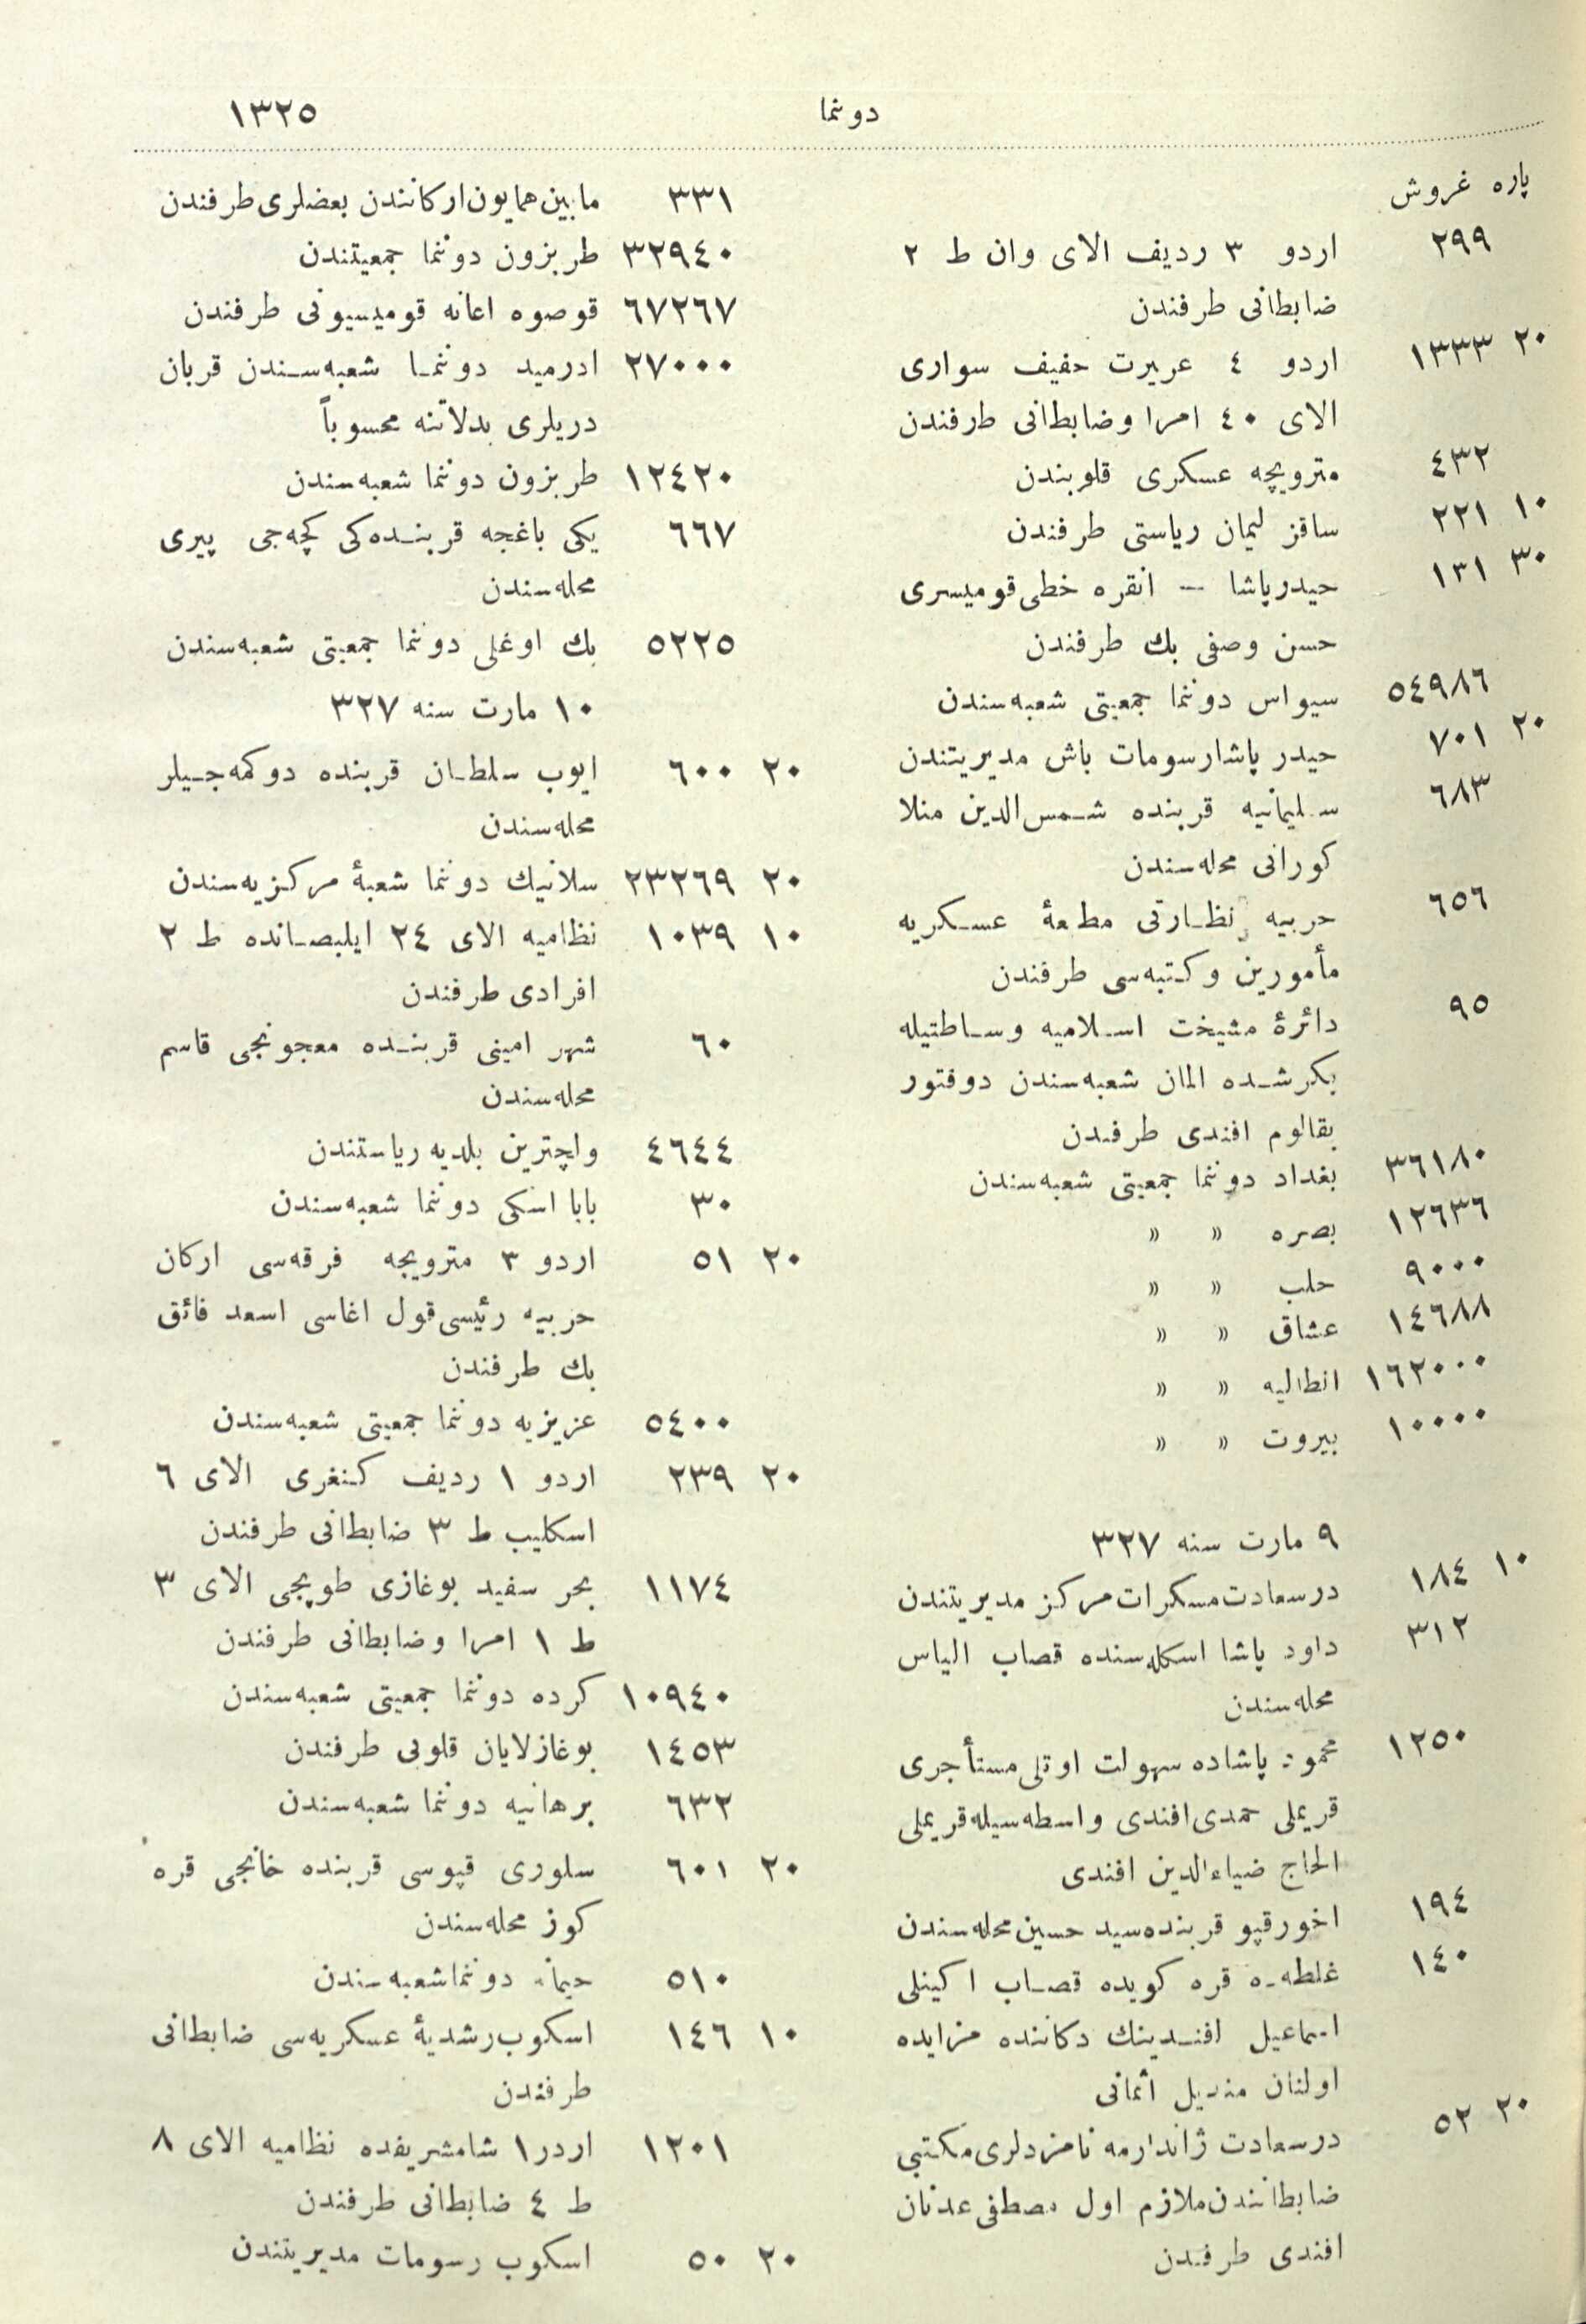 دوننما
١٣٢٥
پاره غروش
٢٩٩ اردو ٣ رديف الاى وان ط ٢
ضابطانى طرفندن
٢٠ ١٣٣٣ اردو ٤ عريرت حفيف سوارى
الاى ٤٠ امرا وضابطانى طرفندن
٤٣٢ متروىچه عسكرى قلوبندن
١٠ ٢٢١ ساقز ليمان رياستى طرفندن
٣٠ ١٣١ حيدرپاشا — انقره خطى قوميسرى
حسن وصفى بك طرفندن
٥٤٩٨٦ سيواس دوننما جمعيتى شعبه‌سندن
٢٠ ٧٠١ حيدر پاشا رسومات باش مديريتندن
٦٨٣ سليمانيه قربنده شمس‌الدين منلا
كورانى محله‌سندن
٦٥٦ حربيه نظارتى مطبعهٔ عسكريه
مأمورين وكتبه‌سى طرفندن
٩٥ دائرهٔ مشيخت اسلاميه وساطتيله
بكرشده المان شعبه‌سندن دوقتور
بقالوم افندى طرفندن
٣٦١٨٠ بغداد دوننما جمعيتى شعبه‌سندن
١٢٦٣٦ بصره » »
٩٠٠٠ حلب » »
١٤٦٨٨ عشاق » »
١٦٢٠٠٠ انطاليه » »
١٠٠٠٠ بيروت » »
٩ مارت سنه ٣٢٧
١٠ ١٨٤ درسعادت مسكرات مركز مديريتندن
٣١٢ داود پاشا اسكله‌سنده قصاب الياس
محله‌سندن
١٢٥٠ محمود پاشاده سهولت اوتلى مستأجرى
قريملى حمدى افندى واسطه‌سيله قريملى
الحاج ضياءالدين افندى
١٩٤ اخورقپو قربنده سيد حسين محله‌سندن
١٤٠ غلطه‌ده قره كويده قصاب اكينلى
اسماعيل افندينك دكاننده مزايده
اولنان منديل اثمانى
٢٠ ٥٢ درسعادت ژاندارمه نامزدلرى مكتبى
ضابطانندن ملازم اول مصطفى عدنان
افندى طرفندن
٣٣١ مابين همايون اركانندن بعضلرى طرفندن
٣٢٩٤٠ طربزون دوننما جمعيتندن
٦٧٢٦٧ قوصوه اعانه قوميسيونى طرفندن
٢٧٠٠٠ ادرميد دوننما شعبه‌سندن قربان
دريلرى بدلاتنه محسوباً
١٢٤٢٠ طربزون دوننما شعبه‌سندن
٦٦٧ يكى باغجه قربنده‌كى كچه‌جى پيرى
محله‌سندن
٥٢٢٥ بك اوغلى دوننما جمعيتى شعبه‌سندن
١٠ مارت سنه ٣٢٧
٢٠ ٦٠٠ ايوب سلطان قربنده دوكمه‌جيلر
محله‌سندن
٢٠ ٢٣٢٦٩ سلانيك دوننما شعبهٔ مركزيه‌سندن
١٠ ١٠٣٩ نظاميه الاى ٢٤ ايلبصانده ط ٢
افرادى طرفندن
٦٠ شهر امينى قربنده معجونجى قاسم
محله‌سندن
٤٦٤٤ واچترين بلديه رياستندن
٣٠ بابا اسكى دوننما شعبه‌سندن
٢٠ ٥١ اردو ٣ متروىجه فرقه‌سى اركان
حربيه رئيسى قول اغاسى اسعد فائق
بك طرفندن
٥٤٠٠ عزيزيه دوننما جمعيتى شعبه‌سندن
٢٠ ٢٣٩ اردو ١ رديف كنغرى الاى ٦
اسكليب ط ٣ ضابطانى طرفندن
١١٧٤ بحر سفيد بوغازى طوپجى الاى ٣
ط ١ امرا وضابطانى طرفندن
١٠٩٤٠ كرده دوننما جمعيتى شعبه‌سندن
١٤٥٣ بوغازلايان قلوبى طرفندن
٦٣٢ برهانيه دوننما شعبه‌سندن
٢٠ ٦٠١ سلورى قپوسى قربنده خانجى قره
كوز محله‌سندن
٥١٠ حيمانه دوننما شعبه‌سندن
١٠ ١٤٦ اسكوب رشديهٔ عسكريه‌سى ضابطانى
طرفندن
١٢٠١ اردو ١ شامشريفده نظاميه الاى ٨
ط ٤ ضابطانى طرفندن
٢٠ ٥٠ اسكوب رسومات مديريتندن